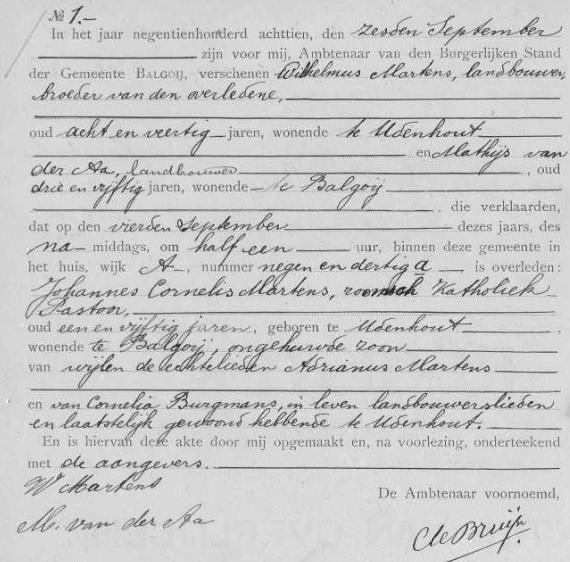 № 1.-
In het jaar negentienhonderd achttien, den zesden September
zijn voor mij, Ambtenaar van den Burgerlijken Stand
der Gemeente BALGOIJ, verschenen Wilhelmus Martens, landbouwer,
broeder van den overledene,
oud acht en veertig jaren, wonende te Udenhout
en Mathijs van
der Aa, landbouwer, oud
drie en vijftig jaren, wonende te Balgoij
, die verklaarden,
dat op den vierden September dezes jaars, des
na- middags, om half een uur, binnen deze gemeente in
het huis, wijk A, nummer negen en dertig a is overleden:
Johannes Cornelis Martens, roomsch Katholiek
Pastoor,
oud een en vijftig jaren, geboren te Udenhout
wonende te Balgoij, ongehuwde zoon
van wijlen de echtelieden Adrianus Martens
en van Cornelia Burgmans, in leven landbouwerslieden
en laatstelijk gewoond hebbende te Udenhout.
En is hiervan deze akte door mij opgemaakt en, na voorlezing, onderteekend
met de aangevers.
W Martens
De Ambtenaar voornoemd,
M. van der Aa
de Bruijn